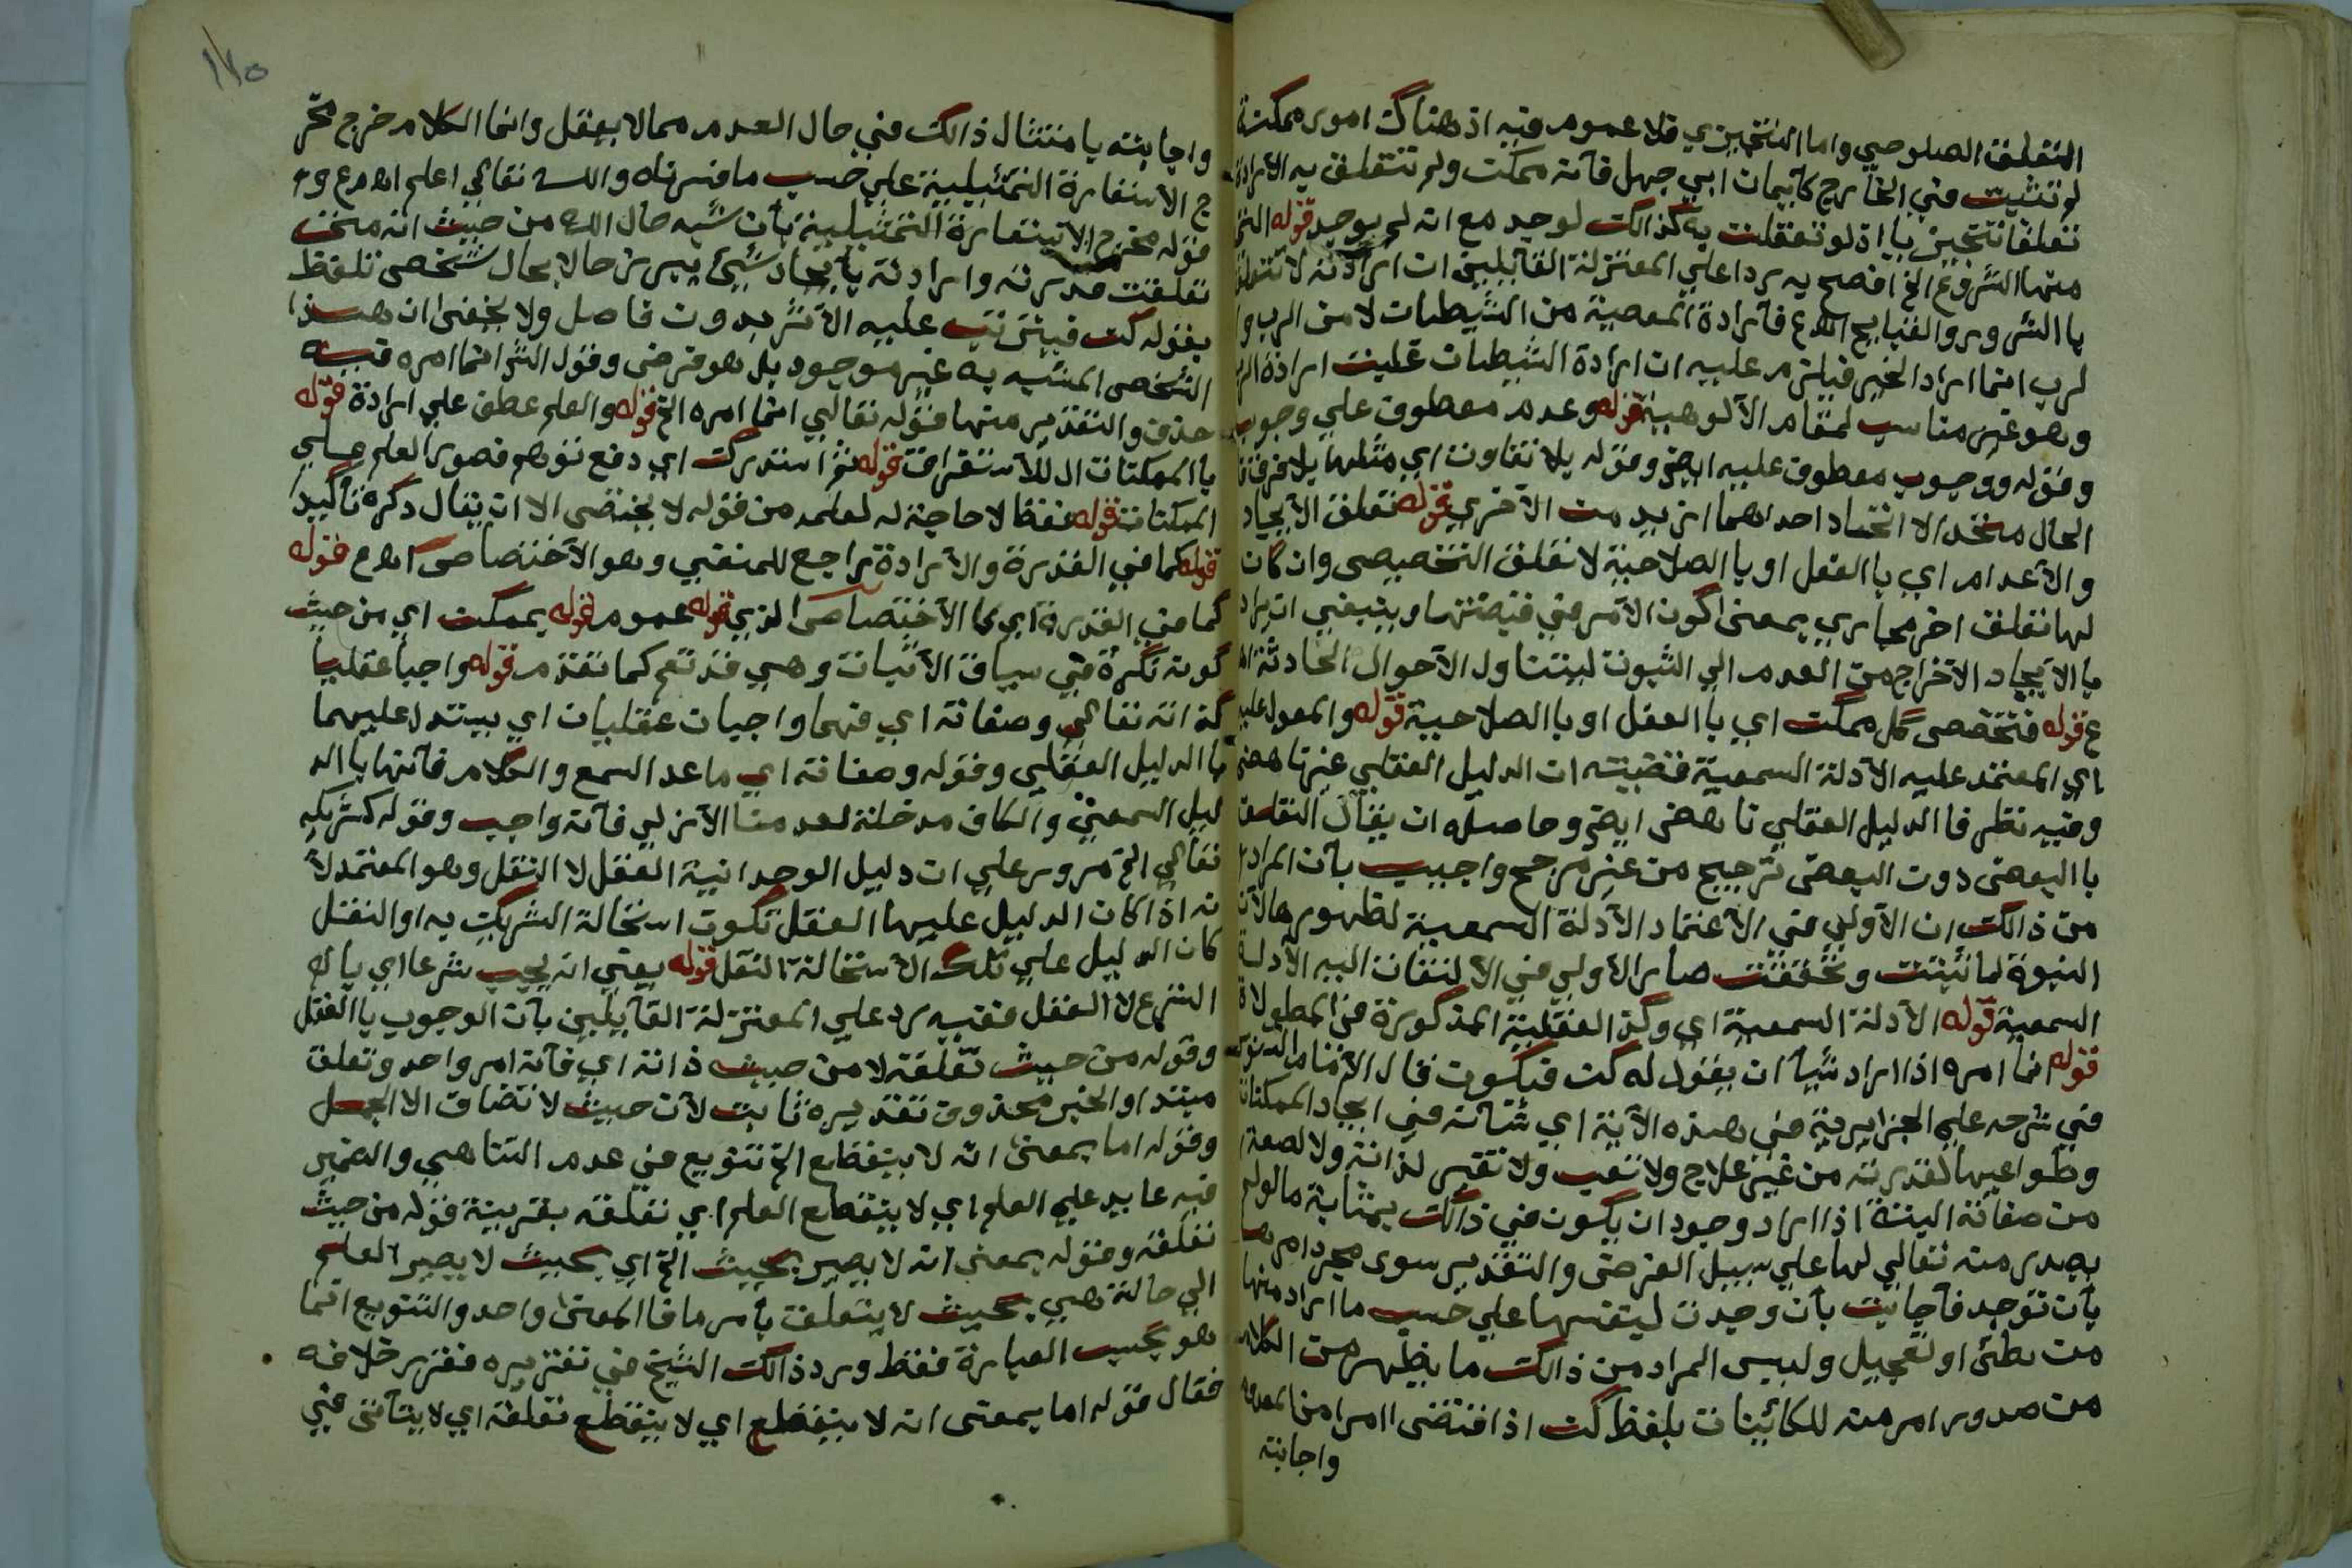 التعلق الصلوحي واما التنجيزي فلا عموم فيه اذ هناك امور ممكنة
لم تثبت في الخارج كايمان ابي جهل فانه ممكن ولم تتعلق به الارادة
تعلقا تنجيزيا اذ لو تعلقت به كذالك لوجد مع انه لم يوجد قوله الخ
منها الشرور الخ افصح به ردا علي المعتزلة القايلين ان ارادته لا تتعلق
با الشرور والقبايح اهع فارادة المعصية من الشيطان لا من الرب وا
لرب انما اراد الخير فيلزم عليه ان ارادة الشيطان غلبت ارادة الرب
وهو غير مناسب لمقام الالوهية قوله وعدم معطوف علي وجوب
وقوله ووجوب معطوف عليه ايضا وقوله بلا تفاوت اي مثلها بلا فرق
الحال متحد الا اتحاد احدهما ازيد من الاخري قوله تعلق الايجاد
والاعدام اي با الفعل او با الصلاحية لا تعلق التخصيص وان كان
لها تعلق اخر مجازي بمعني كون الامر في قبضتها وينبغي ان يراد
با الايجاد الاخراج من العدم الي الثبوت ليتناول الاحوال الحادثة اه
ع قوله فتخصص كل ممكن اي با الفعل او با الصلاحية قوله والمعول عليه
اي المعتمد عليه الادلة السمعية فقضيته ان الدليل العقلي غير ناهض
وفيه نظر فا الدليل العقلي ناهض ايضا وحاصله ان يقال التعلق
با البعض دون البعض ترجيح من غير مرجح واجيب بان المراد
من ذالك ان الاولي في الاعتماد الادلة السمعية لظهورها لان
النبوة لما ثبتت وتحققت صار الاولي في الالتفات اليه الادلة
السمعية قوله الادلة السمعية اي وكذا العقلية المذكورة في المطولات
قوله انما امره اذا اراد شيا ان يقول له كن فيكون قال الامام السنوسي
في شرحه علي الجزايرية في هذه الاية اي شانه في ايجاد الممكنات
وطواعيها لقدرته من غير علاج ولا تعب ولا تغير لذاته ولا لصفة
من صفاته البتة اذا اراد وجود ان يكون في ذالك بمثابة ما لو لم
يصدر منه تعالي لها علي سبيل الفرض والتقدير سوى مجرد امرها
بان توجد فاجابت بان وجدت لنفسها علي حسب ما اراد منها
من بطئ او تعجيل وليس المراد من ذالك ما يظهر من الكلام
من صدور امر منه للكائينات بلفظ كن اذا فتقضى امرا من المعدوم
واجابته
١٧٥
واجابته بامتثال ذالك في حال العدم مما لا يعقل وانما الكلام خرج مخر
ج الاستعارة التمثيلية علي حسب ما فسرناه والله تعالي اعلم اهع و
قوله مخرج الاستعارة التمثيلية بان شبه حال الله من حيث انه متي
تعلقت قدرته وارادته بايجاد شيئ يبرز حالا بحال شخص تلفظ
بقوله كن فيترتب عليه الاثر بدون فاصل ولا يخفى ان هذا
الشخص المشبه به غير موجود بل هو فرضي وقول الشر انما امره فيه
حذف والتقدير منها قوله تعالي انما امره الخ قوله والعلم عطف علي ارادة قوله
با الممكنات ال للاستغراق قوله ثم استدرك اي دفع توهم قصور العلم علي
الممكنات قوله فقط لا حاجة له لعلمه من قوله لا يختص الا ان يقال ذكره تاكيدا
قوله كما في القدرة والارادة راجع للمنفي وهو الاختصاص اهع قوله
كما في القدرة اي كا الاختصاص الذي قوله عموم قوله بممكن اي من حيث
كونه نكرة في سياق الاثبات وهي قد تعم كما تقدم قوله واجبا عقليا
كذاته تعالي وصفاته اي فهما واجبان عقليان اي يستدل عليهما
با الدليل العقلي وقوله وصفاته اي ما عد السمع والكلام فانها با الد
ليل السمعي والكاف مدخلة لعدمنا الازلي فانه واجب وقوله كشريكه
تعالي الخ مرور علي ان دليل الوحدانية العقل لا النقل وهو المعتمد لا
نه اذا كان الدليل عليها العقل تكون استحالة الشريك به او النقل
كان الدليل علي تلك الاستحالة النقل قوله يعني انه يجب شرعا اي با لا
الشرع لا العقل ففيه رد علي المعتزلة القايلين بان الوجوب با العقل
وقوله من حيث تعلقه لا من حيث ذاته اي فانه امر واحد وتعلق
مبتدا والخبر محذوف تقديره ثابت لان حيث لا تضاف الا الجمل
وقوله اما بمعنى انه لا ينقطع الخ تنويع في عدم التناهي والضمير
فيه عايد علي العلم اي لا ينقطع العلم اي تعلقه بقرينة قوله من حيث
تعلقه وقوله بمعني انه لا يصير بحيث الخ اي بحيث لا يصير العلم
الي حالة هي بحيث لا يتعلق بامر ما فا المعنى واحد والتنويع انما
هو بحسب العبارة فقط ورد ذالك الشيخ في تقريره فقرر خلافه
فقال قوله اما بمعنى انه لا ينقطع اي لا ينقطع تعلقه اي لا يتاتى في